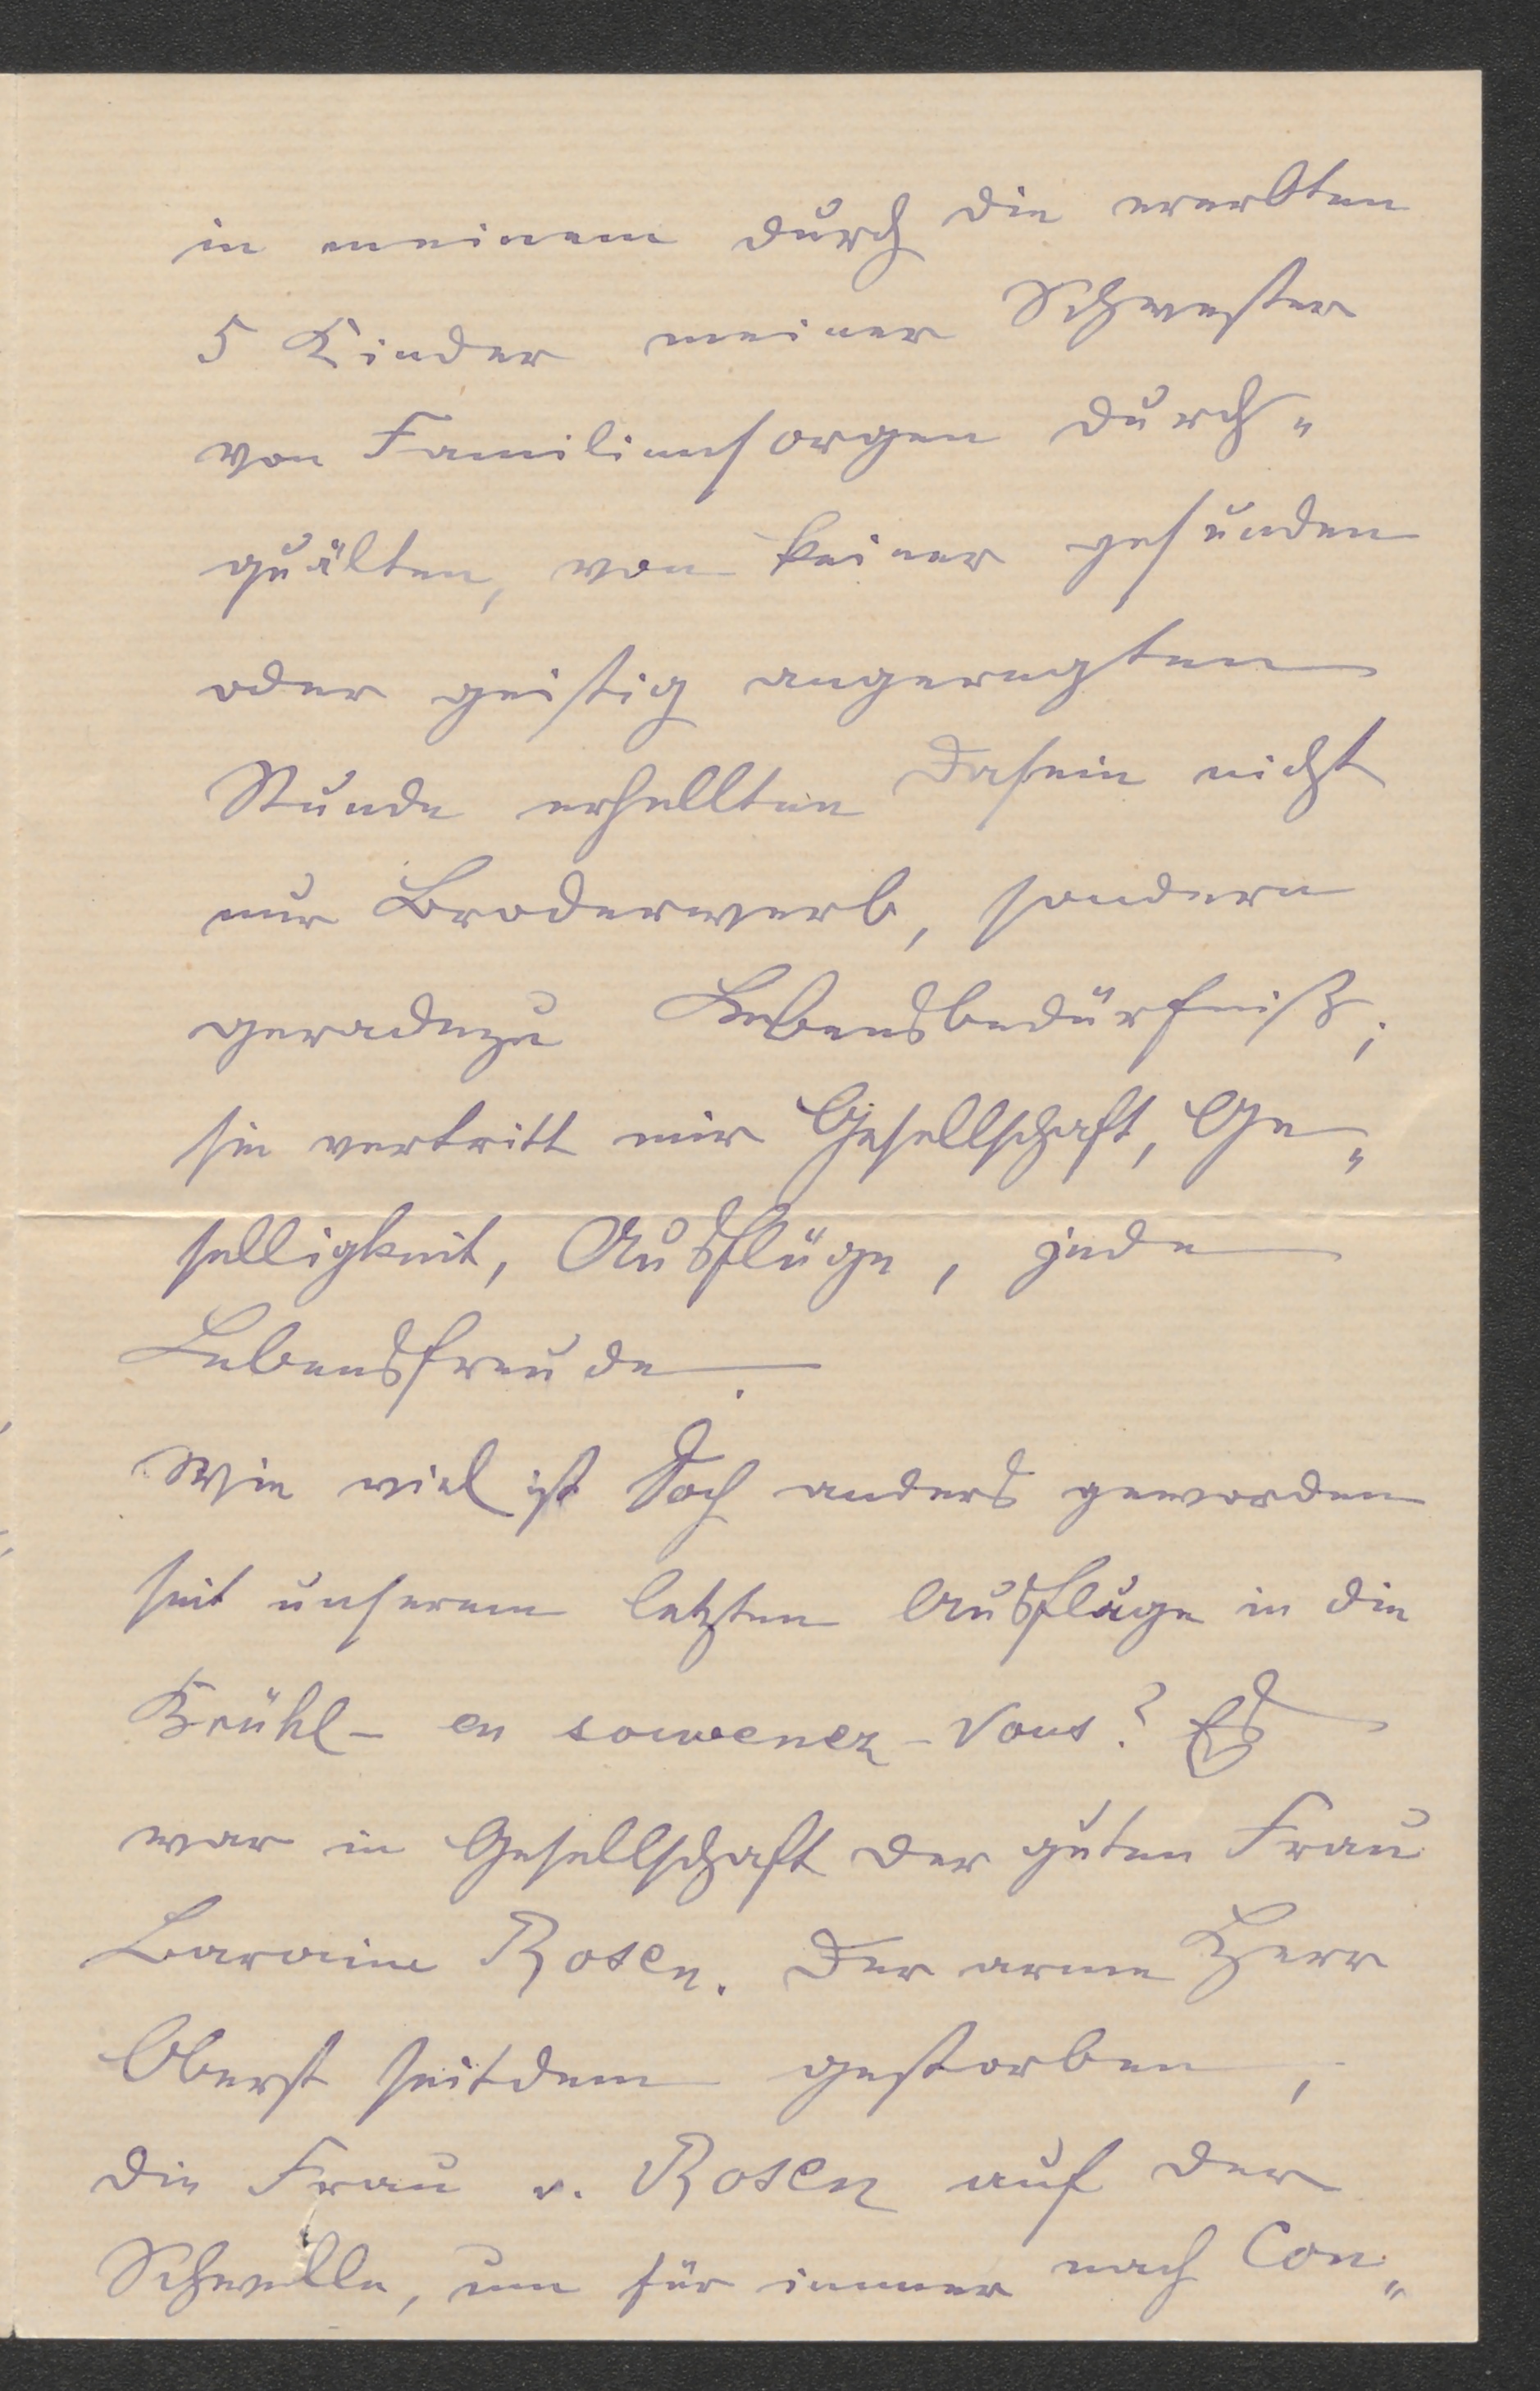 in meinem durch die ererbten
5 Kinder meiner Schwester
von Familiensorgen durch„
quälten, von keiner gesunden
oder geistig angeregten
Stunde erhellten Dasein nicht
nur Broderwerb, sondern
geradezu Lebensbedürfniß;
sie vertritt mir Gesellschaft, Ge„
selligkeit, Ausflüge, jede
Lebensfreude.
Wie viel ist doch anders geworden
seit unserem letzten Ausfluge in die
Brühl – en souvenez-vous? Es
war in Gesellschaft der guten Frau
Baronin Rosen. Der arme Herr
Oberst seitdem gestorben,
die Frau v. Rosen auf der
Schwelle, um für immer nach Con„